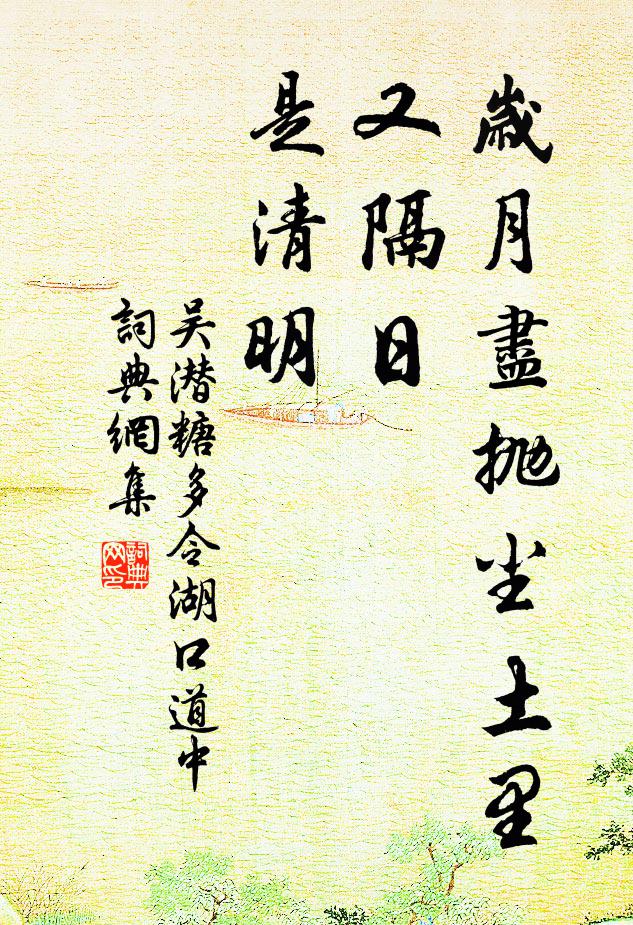 歲月盡抛尘土里
又隔日
是清明
吴潜糖多令湖口道中
詞典網集
詞典
网印